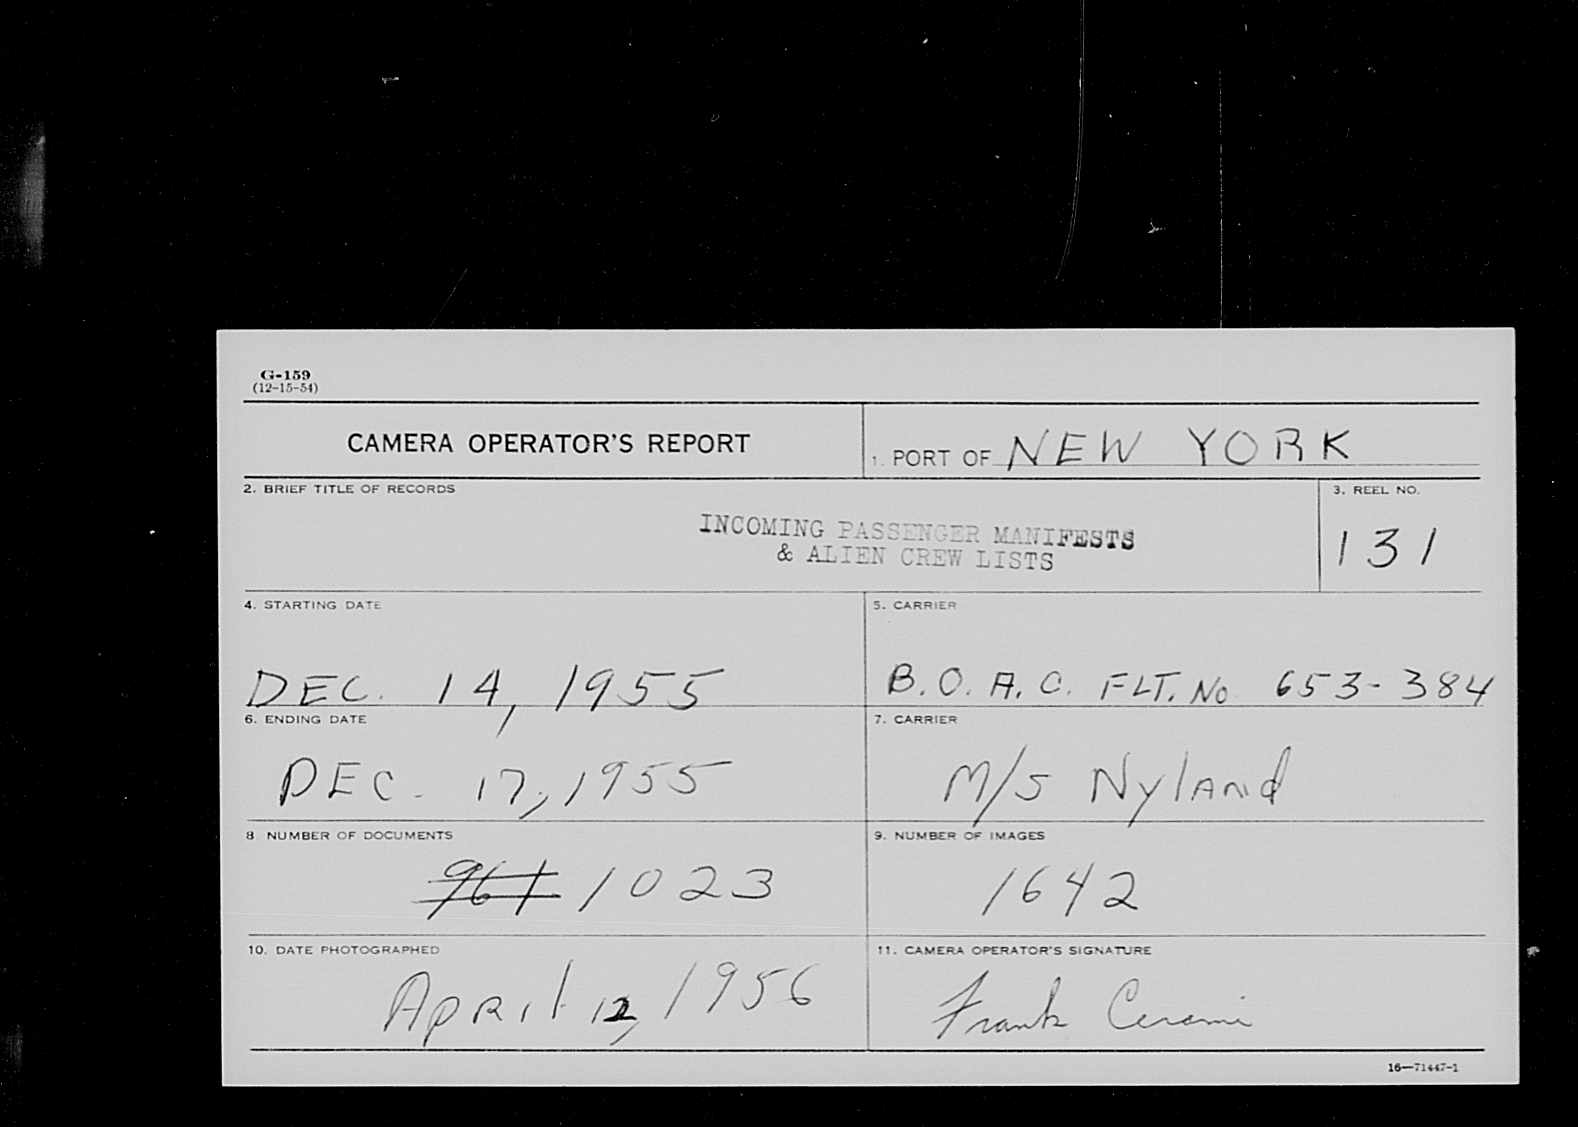 G-159
(12-15-54)
CAMERA OPERATOR'S REPORT
1. PORT OF NEW YORK
2. BRIEF TITLE OF RECORDS
INCOMING PASSENGER MANIFESTS
& ALIEN CREW LISTS
3. REEL NO.
131
4. STARTING DATE
DEC. 14, 1955
5. CARRIER
B.O.A.C. FLT. No 653-384
6. ENDING DATE
DEC. 17, 1955
7. CARRIER
M/S Nyland
8 NUMBER OF DOCUMENTS
961 1023
9. NUMBER OF IMAGES
1642
10. DATE PHOTOGRAPHED
April 12, 1956
11. CAMERA OPERATOR'S SIGNATURE
Frank Cerami
16—71447-1